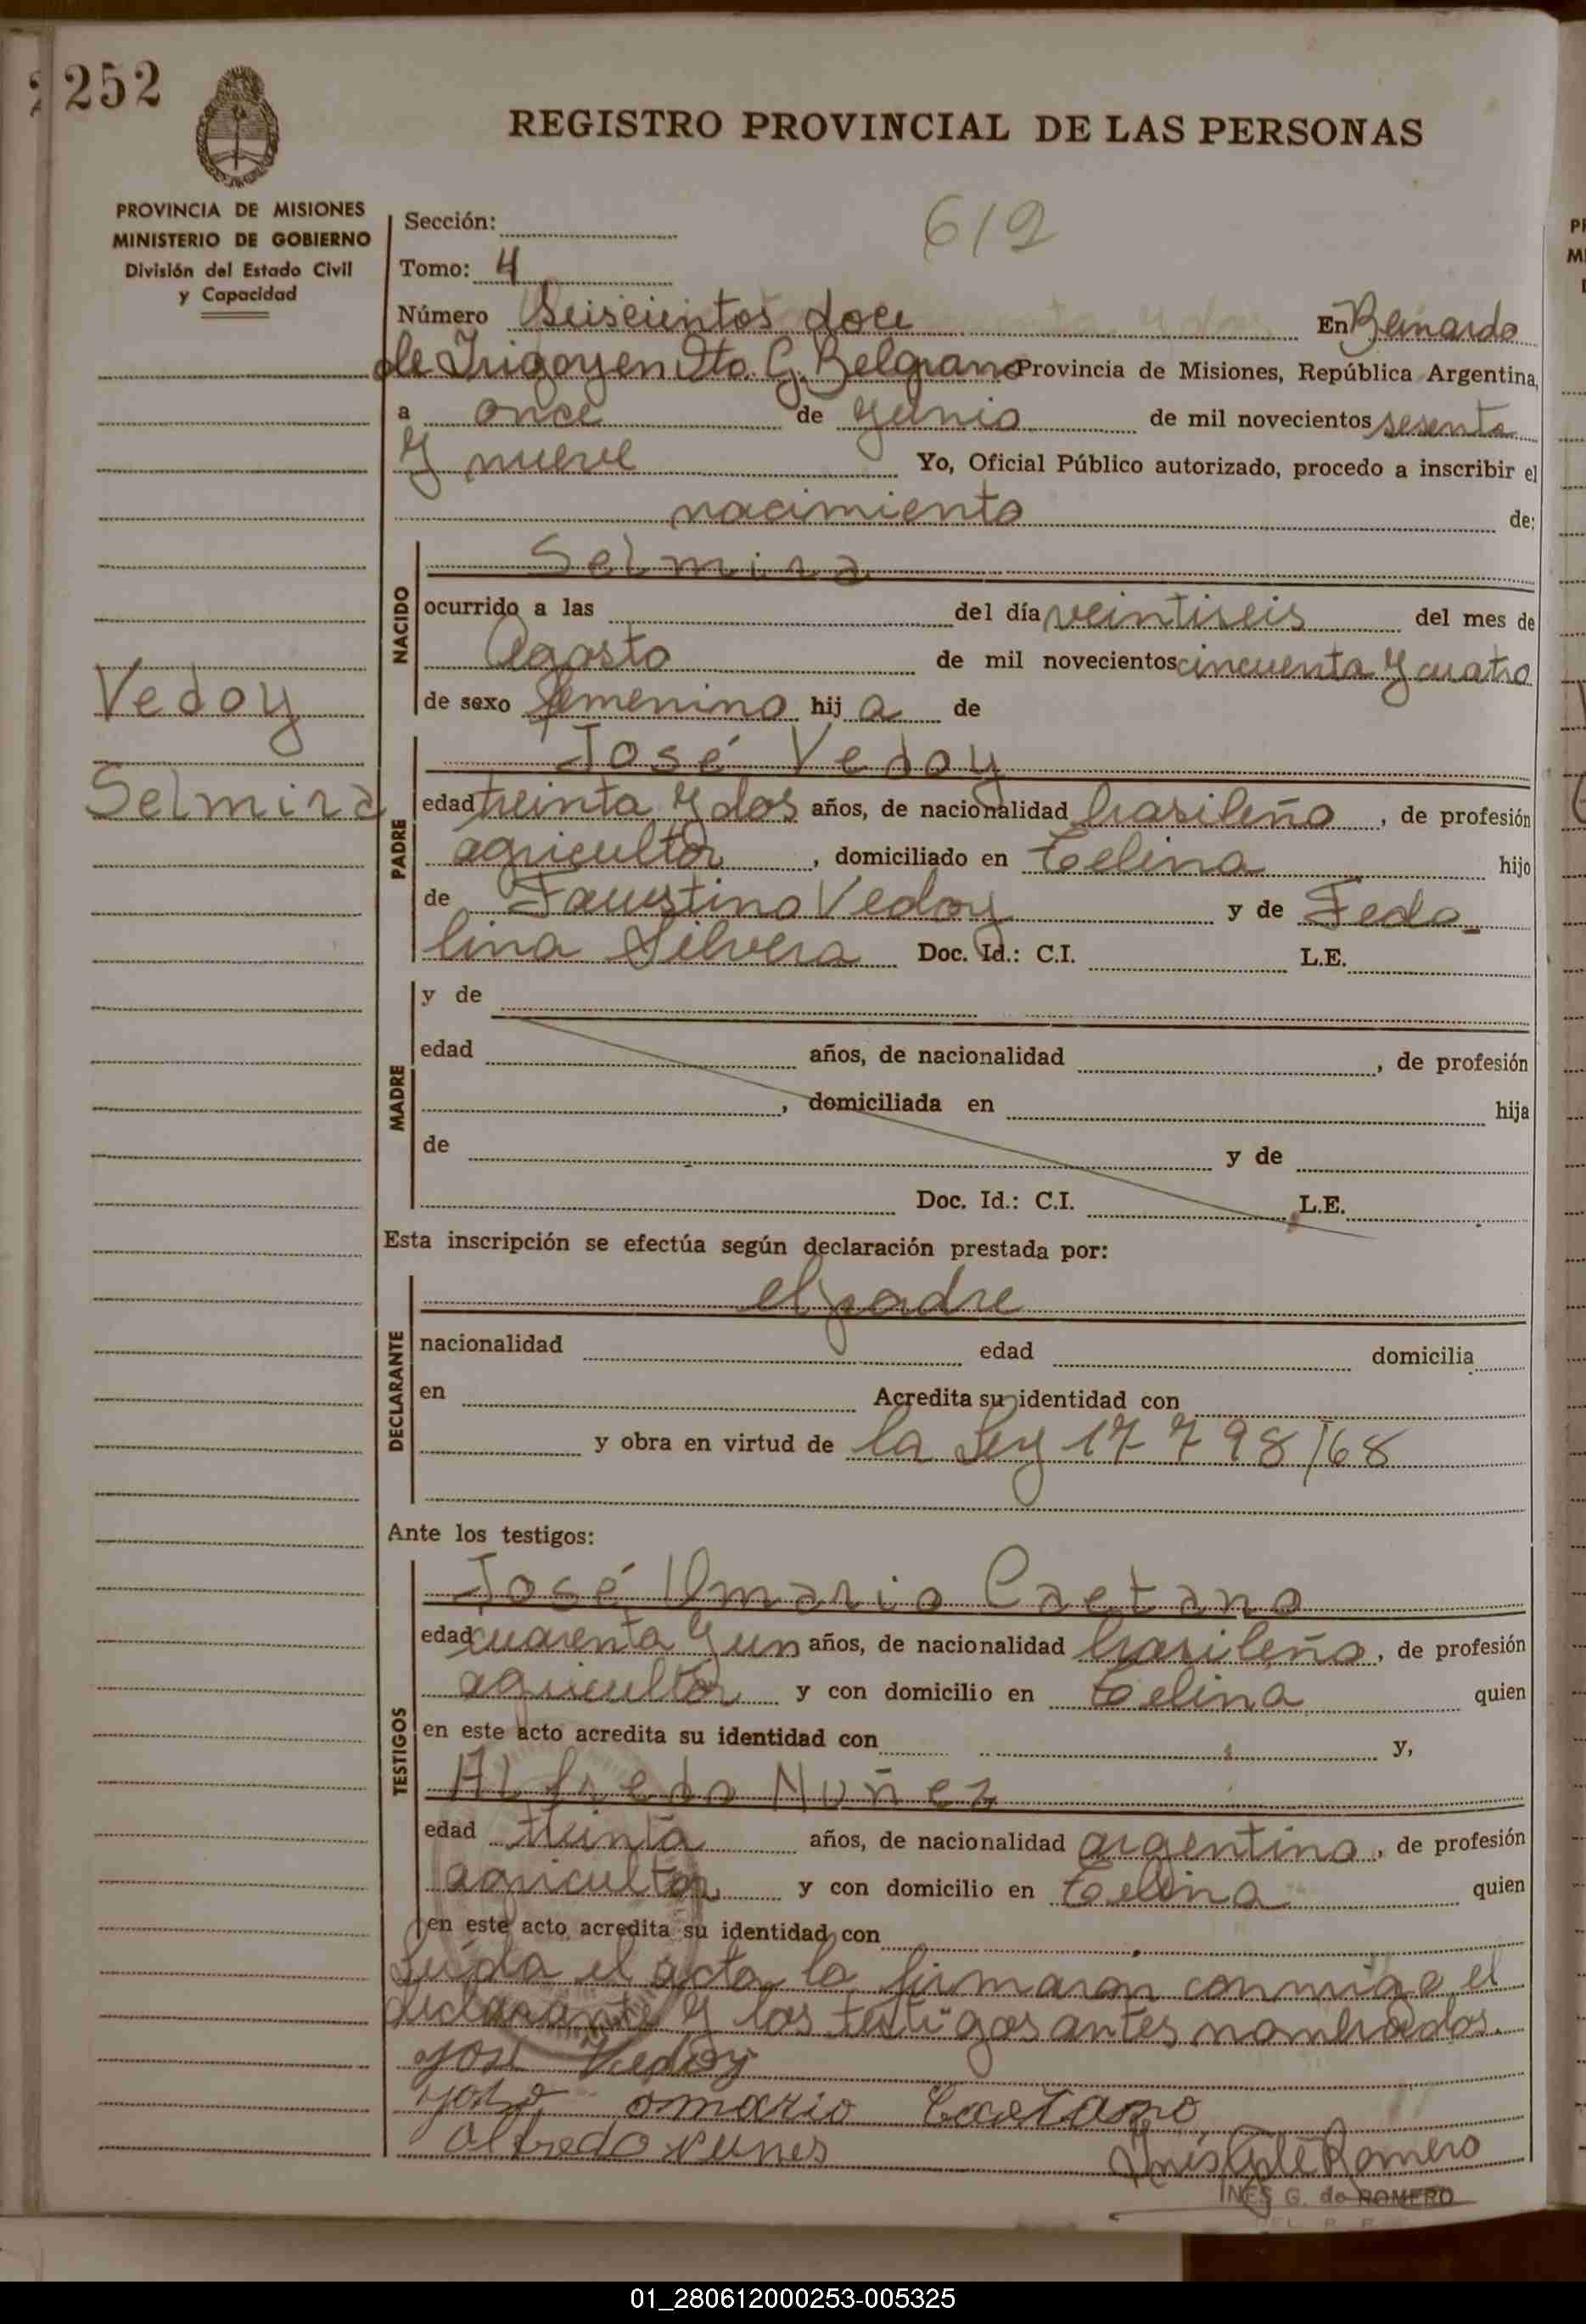 252
REGISTRO PROVINCIAL DE LAS PERSONAS
PROVINCIA DE MISIONES
MINISTERIO DE GOBIERNO
División del Estado Civil
y Capacidad
Sección:
612
Tomo: 4
Número Seiscientos doce En Bernardo
de Irigoyen Dto. G. Belgrano Provincia de Misiones, República Argentina,
a once de Junio de mil novecientos sesenta
y nueve Yo, Oficial Público autorizado, procedo a inscribir el
nacimiento de:
NACIDO
Selmira
ocurrido a las del día veintiseis del mes de
Agosto de mil novecientos cincuenta y cuatro
de sexo femenino hij a de
Vedoy
Selmira
PADRE
José Vedoy
edad treinta y dos años, de nacionalidad brasileño, de profesión
agricultor, domiciliado en Celina hijo
de Faustino Vedoy y de Fedo
lina Silvera Doc. Id.: C.I. L.E.
MADRE
y de
edad años, de nacionalidad , de profesión
, domiciliada en hija
de y de
Doc. Id.: C.I. L.E.
Esta inscripción se efectúa según declaración prestada por:
DECLARANTE
el padre
nacionalidad edad domicilia
en Acredita su identidad con
y obra en virtud de la Ley 17798/68
Ante los testigos:
TESTIGOS
José Omario Caetano
edad cuarenta y un años, de nacionalidad brasileño, de profesión
agricultor y con domicilio en Celina quien
en este acto acredita su identidad con y,
Alfredo Nuñez
edad treinta años, de nacionalidad argentino, de profesión
agricultor y con domicilio en Celina quien
en este acto acredita su identidad con
Leída el acta la firmaron conmigo el
declarante y los testigos antes nombrados.
José Vedoy
José omario Caetano
alfredo nunes
Romero
INES G. de ROMERO
01_280612000253-005325